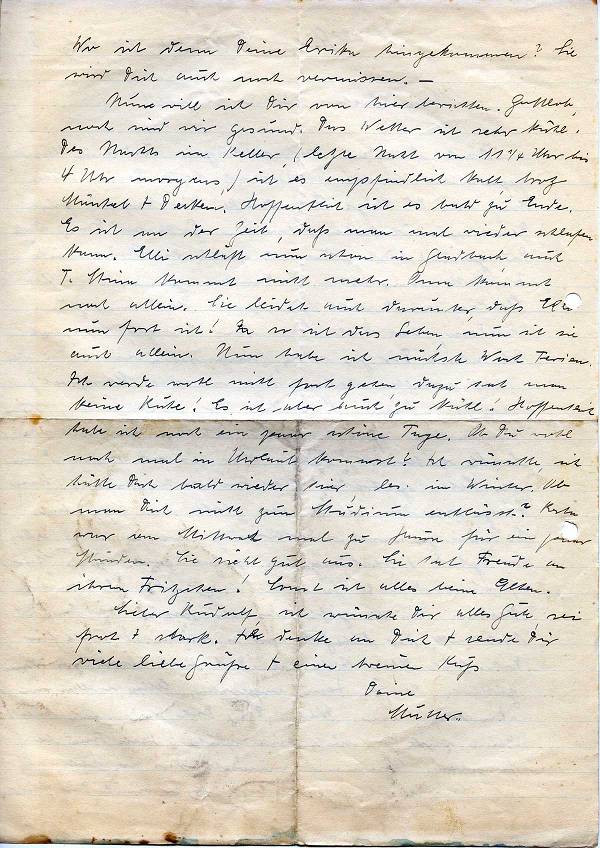 Wo ist denn Deine Erika hingekommen? Sie
wird Dich auch noch vermissen. —
Nun will ich Dir von hier berichten. Gottlob,
noch sind wir gesund. Das Wetter ist sehr kühl.
Des Nachts im Keller, (letzte Nacht von 11 1/4 Uhr bis
4 Uhr morgens,) ist es empfindlich kalt, trotz
Mäntel + Decken. Hoffentlich ist es bald zu Ende.
Es ist an der Zeit, daß man mal wieder schlafen
kann. Elli schläft nun schon in Gladbach auch
T. Stina kommt nicht mehr. Sie kommt
mal allein. Sie leidet auch darunter, daß
nun fort ist! Ja so ist das Leben, nun ist sie
auch allein. Nun habe ich nächste Woche Ferien.
Ich werde wohl nicht fort gehen dazu hat man
keine Ruhe! Es ist aber auch zu kühl! Hoffentlich
habe ich noch ein paar schöne Tage. Ob Du wohl
noch mal in Urlaub kommst? Ich wünschte, ich
hätte Dich bald wieder hier, bes. im Winter. Ob
man Dich nicht zum Studium entlässt?
war am Mittwoch mal zu Hause für ein paar
Stunden. Sie sieht gut aus. Sie hat Freude an
ihrem Fritzchen! Sonst ist alles beim Alten.
Lieber Rudolf, ich wünsche Dir alles Gute, sei
froh + stark. Ich denke an Dich + sende Dir
viele liebe Grüße + einen Kuß
Deine
Mutter.